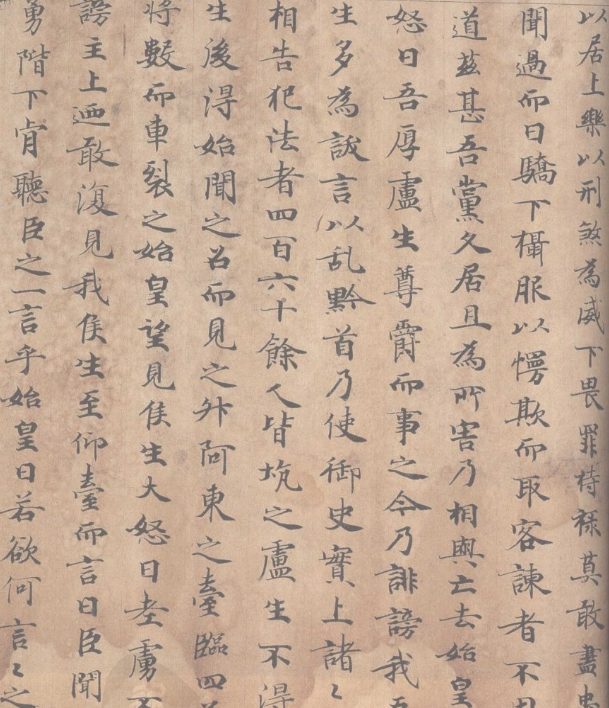 以居上樂以刑煞為威下畏罪持祿莫敢盡忠
聞過而日驕下懾服以慢欺而取容諫者不用
道茲甚吾黨久居且為所害乃相與亡去始皇
怒曰吾厚盧生尊爵而事之今乃誹謗我吾
生多為訞言以乱黔首乃使御史實上諸〻
相告犯法者四百六十餘人皆坑之盧生不淂
生後淂始聞之召而見之升阿東之臺臨四
將數而車裂之始皇望見侯生大怒曰老虜不
謗主上迺敢復見我侯生至仰臺而言曰臣聞
勇陛下肯聽臣之一言乎始皇曰若欲何言〻之